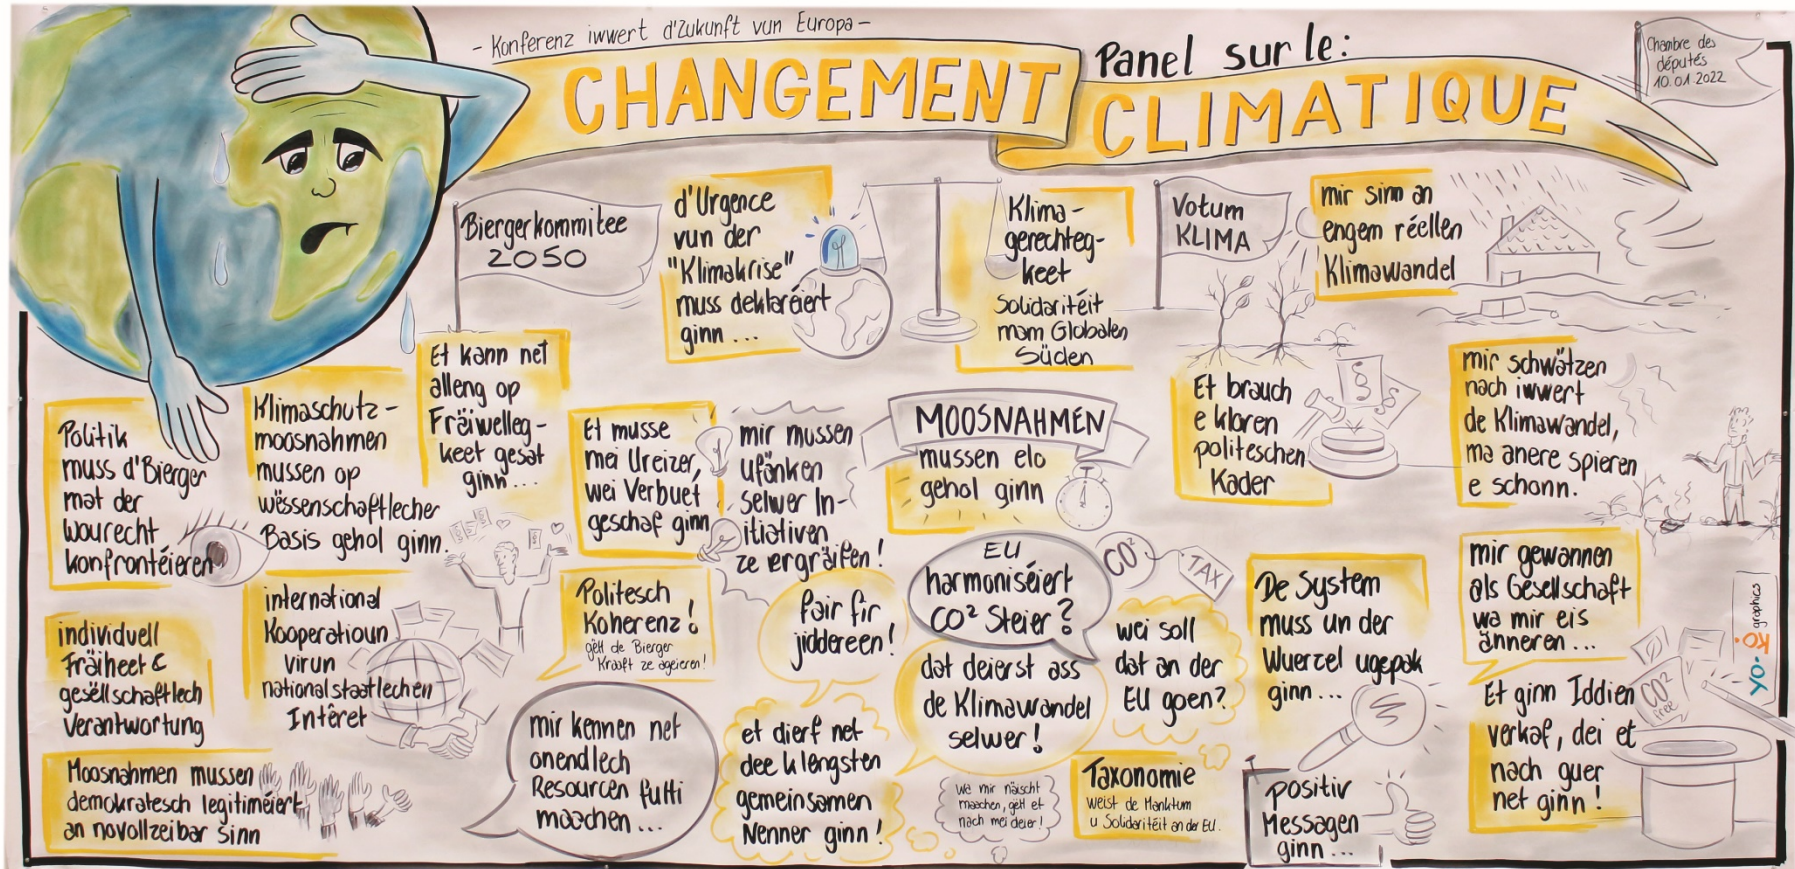 - Konferenz iwwert d'Zukunft vun Europa -
Panel sur le:
CHANGEMENT
CLIMATIQUE
Chambre des
députés
10.01.2022
Biergerkommitee
2050
d'Urgence
vun der
"Klimakrise"
muss deklaréiert
ginn ...
Klima-
gerechteg-
keet
Solidaritéit
mam Globalen
Süden
Votum
KLIMA
mir sinn an
engem réellen
Klimawandel
Politik
muss d'Bierger
mat der
Wourecht
konfrontéieren
Klimaschutz-
moosnahmen
mussen op
wëssenschaftlecher
Basis geholl ginn.
Et kann net
alleng op
Fräiwelleg-
keet gesat
ginn ...
Et musse
méi Ureizer,
wéi Verbuet
geschaf ginn
mir mussen
ufänken
selwer In-
itiativen
ze ergräifen!
MOOSNAHMEN
mussen elo
gehol ginn
Et brauch
e kloren
politeschen
Kader
§
§
mir schwätzen
nach iwwert
de Klimawandel,
ma anere spieren
e schonn.
individuell
Fräiheet &
gesëllschaftlech
Verantwortung
international
Kooperatioun
virun
nationalstaatlechen
Intêret
Politesch
Koherenz!
gëtt de Bierger
Kraaft ze agéieren!
fair fir
jiddereen!
EU
harmoniséiert
CO² Steier?
CO²
TAX
dat deierst ass
de Klimawandel
selwer!
wei soll
dat an der
EU goen?
De System
muss un der
Wuerzel ugepak
ginn ...
mir gewannen
als Gesellschaft
wa mir eis
änneren ...
Moosnahmen mussen
demokratesch legitiméiert
an novollzeibar sinn
mir kënnen net
onendlech
Resourcen futti
maachen ...
et dierf net
dee klengsten
gemeinsamen
Nenner ginn!
wa mir näischt
maachen, gëtt et
nach méi deier!
Taxonomie
weist de Manktum
u Solidaritéit an der EU.
positiv
Messagen
ginn ...
Et ginn Iddien
verkaf, déi et
nach guer
net ginn!
CO²
free
yo.kö
graphics